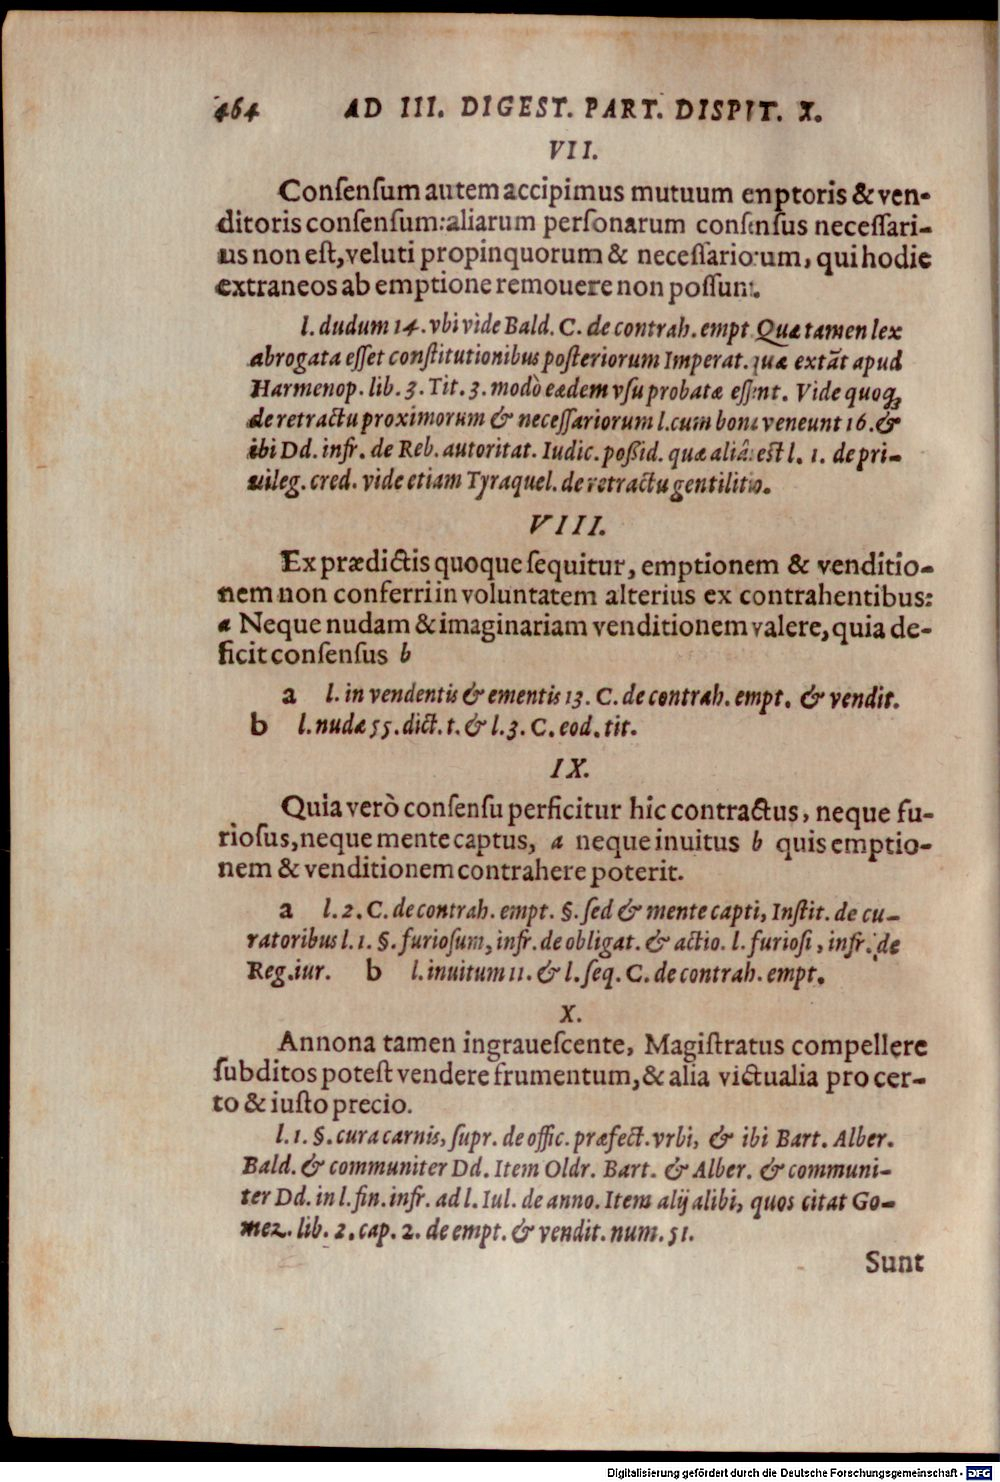 464 AD III. DIGEST. PART. DISPIT. X.
VII.
Conſenſum autem accipimus mutuum enptoris & ven-
ditoris conſenſum: aliarum perſonarum conſenſus neceſſari-
us non eſt, veluti propinquorum & neceſſariorum, qui hodie
extraneos ab emptione remouere non poſſunt.
l. dudum 14. vbi vide Bald. C. de contrah. empt. Quæ tamen lex
abrogata eſſet conſtitutionibus poſteriorum Imperat. quæ extãt apud
Harmenop. lib. 3. Tit. 3. modò eædem vſu probatæ eſſent. Vide quoq;
de retractu proximorum & neceſſariorum l. cum bona veneunt 16. &
ibi Dd. infr. de Reb. autoritat. Iudic. poßid. quæ aliâs eſt l. 1. de pri-
uileg. cred. vide etiam Tyraquel. de retractu gentilitio.
VIII.
Ex prædictis quoque ſequitur, emptionem & venditio-
nem non conferri in voluntatem alterius ex contrahentibus:
a Neque nudam & imaginariam venditionem valere, quia de-
ficit conſenſus b
a l. in vendentis & ementis 13. C. de contrah. empt. & vendit.
b l. nudæ 55. dict. t. & l. 3. C. eod. tit.
IX.
Quia verò conſenſu perficitur hic contractus, neque fu-
rioſus, neque mente captus, a neque inuitus b quis emptio-
nem & venditionem contrahere poterit.
a l. 2. C. de contrah. empt. §. ſed & mente capti, Inſtit. de cu-
ratoribus l. 1. §. furioſum, infr. de obligat. & actio. l. furioſi, infr. de
Reg. iur. b l. inuitum 11. & l. ſeq. C. de contrah. empt.
X.
Annona tamen ingraueſcente, Magiſtratus compellere
ſubditos poteſt vendere frumentum, & alia victualia pro cer-
to & iuſto precio.
l. 1. §. cura carnis, ſupr. de offic. præfect. vrbi, & ibi Bart. Alber.
Bald. & communiter Dd. Item Oldr. Bart. & Alber. & communi-
ter Dd. in l. fin. infr. ad l. Iul. de anno. Item alij alibi, quos citat Go-
mez. lib. 2. cap. 2. de empt. & vendit. num. 51.
Sunt
Digitalisierung gefördert durch die Deutsche Forschungsgemeinschaft - DFG